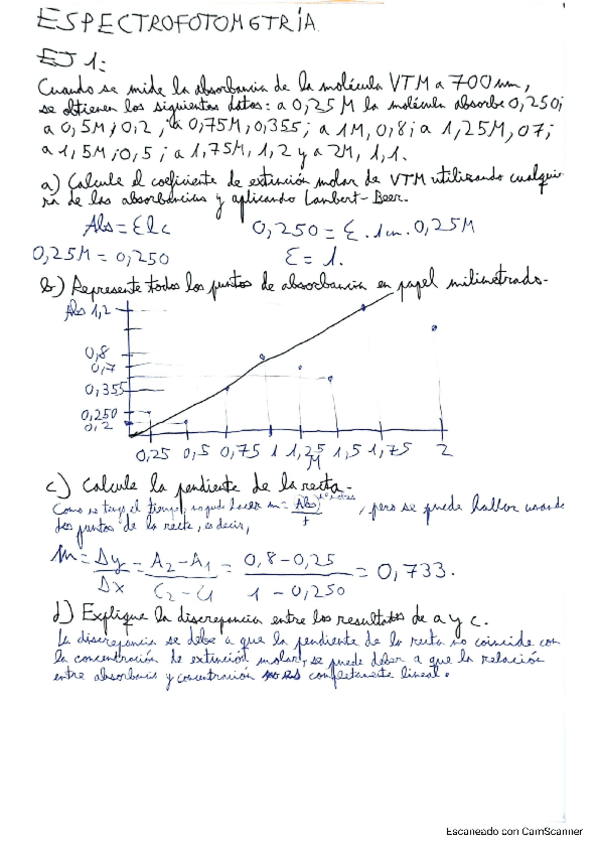 ESPECTROFOTOMETRÍA.
EJ 1:
Cuando se mide la absorbancia de la molécula VTM a 700 nm,
se obtienen los siguientes datos: a 0,25 M la molécula absorbe 0,250;
a 0,5M; 0,2, a 0,75M, 0,355; a 1M, 0,8; a 1,25M, 07;
a 1,5M; 0,5; a 1,75M, 1,2 y a 2M, 1,1.
a) Calcule el coeficiente de extinción molar de VTM utilizando cualquie
ra de las absorbancias y aplicando Lambert-Beer.
Abs = Elc 0,250 = E . 1cm . 0,25M
0,25M = 0,250 E = 1.
b) Represente todos los puntos de absorbancia en papel milimetrado.
Abs 1,2
0,8
0,7
0,355
0,250
0,2
0,25 0,5 0,75 1 1,25 1,5 1,75 2
M
c) Calcule la pendiente de la recta.
Como no tengo el tiempo, no puedo hacer m = Abs / t, pero se puede hallar usando
dos puntos de la recta, es decir,
m = Δy / Δx = A2 - A1 / C2 - C1 = 0,8 - 0,25 / 1 - 0,250 = 0,733.
d) Explique la discrepancia entre los resultados de a y c.
La discrepancia se debe a que la pendiente de la recta no coincide con
la concentración de extinción molar, se puede deber a que la relación
entre absorbancia y concentración no es completamente lineal.
Escaneado con CamScanner